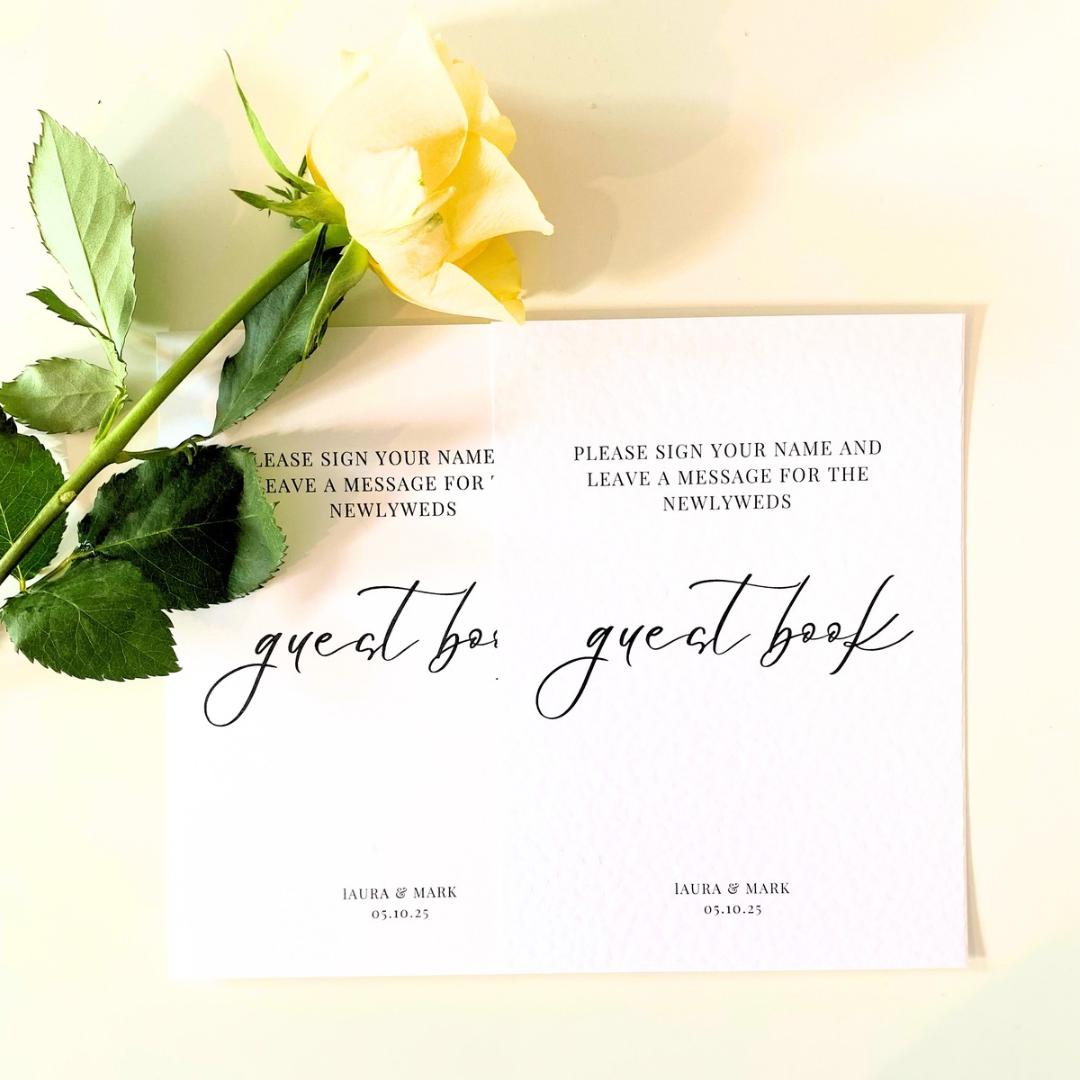 LEASE SIGN YOUR NAME
EAVE A MESSAGE FOR
NEWLYWEDS
guest
lAURA & MARK
05.10.25
PLEASE SIGN YOUR NAME AND
LEAVE A MESSAGE FOR THE
NEWLYWEDS
guest book
lAURA & MARK
05.10.25